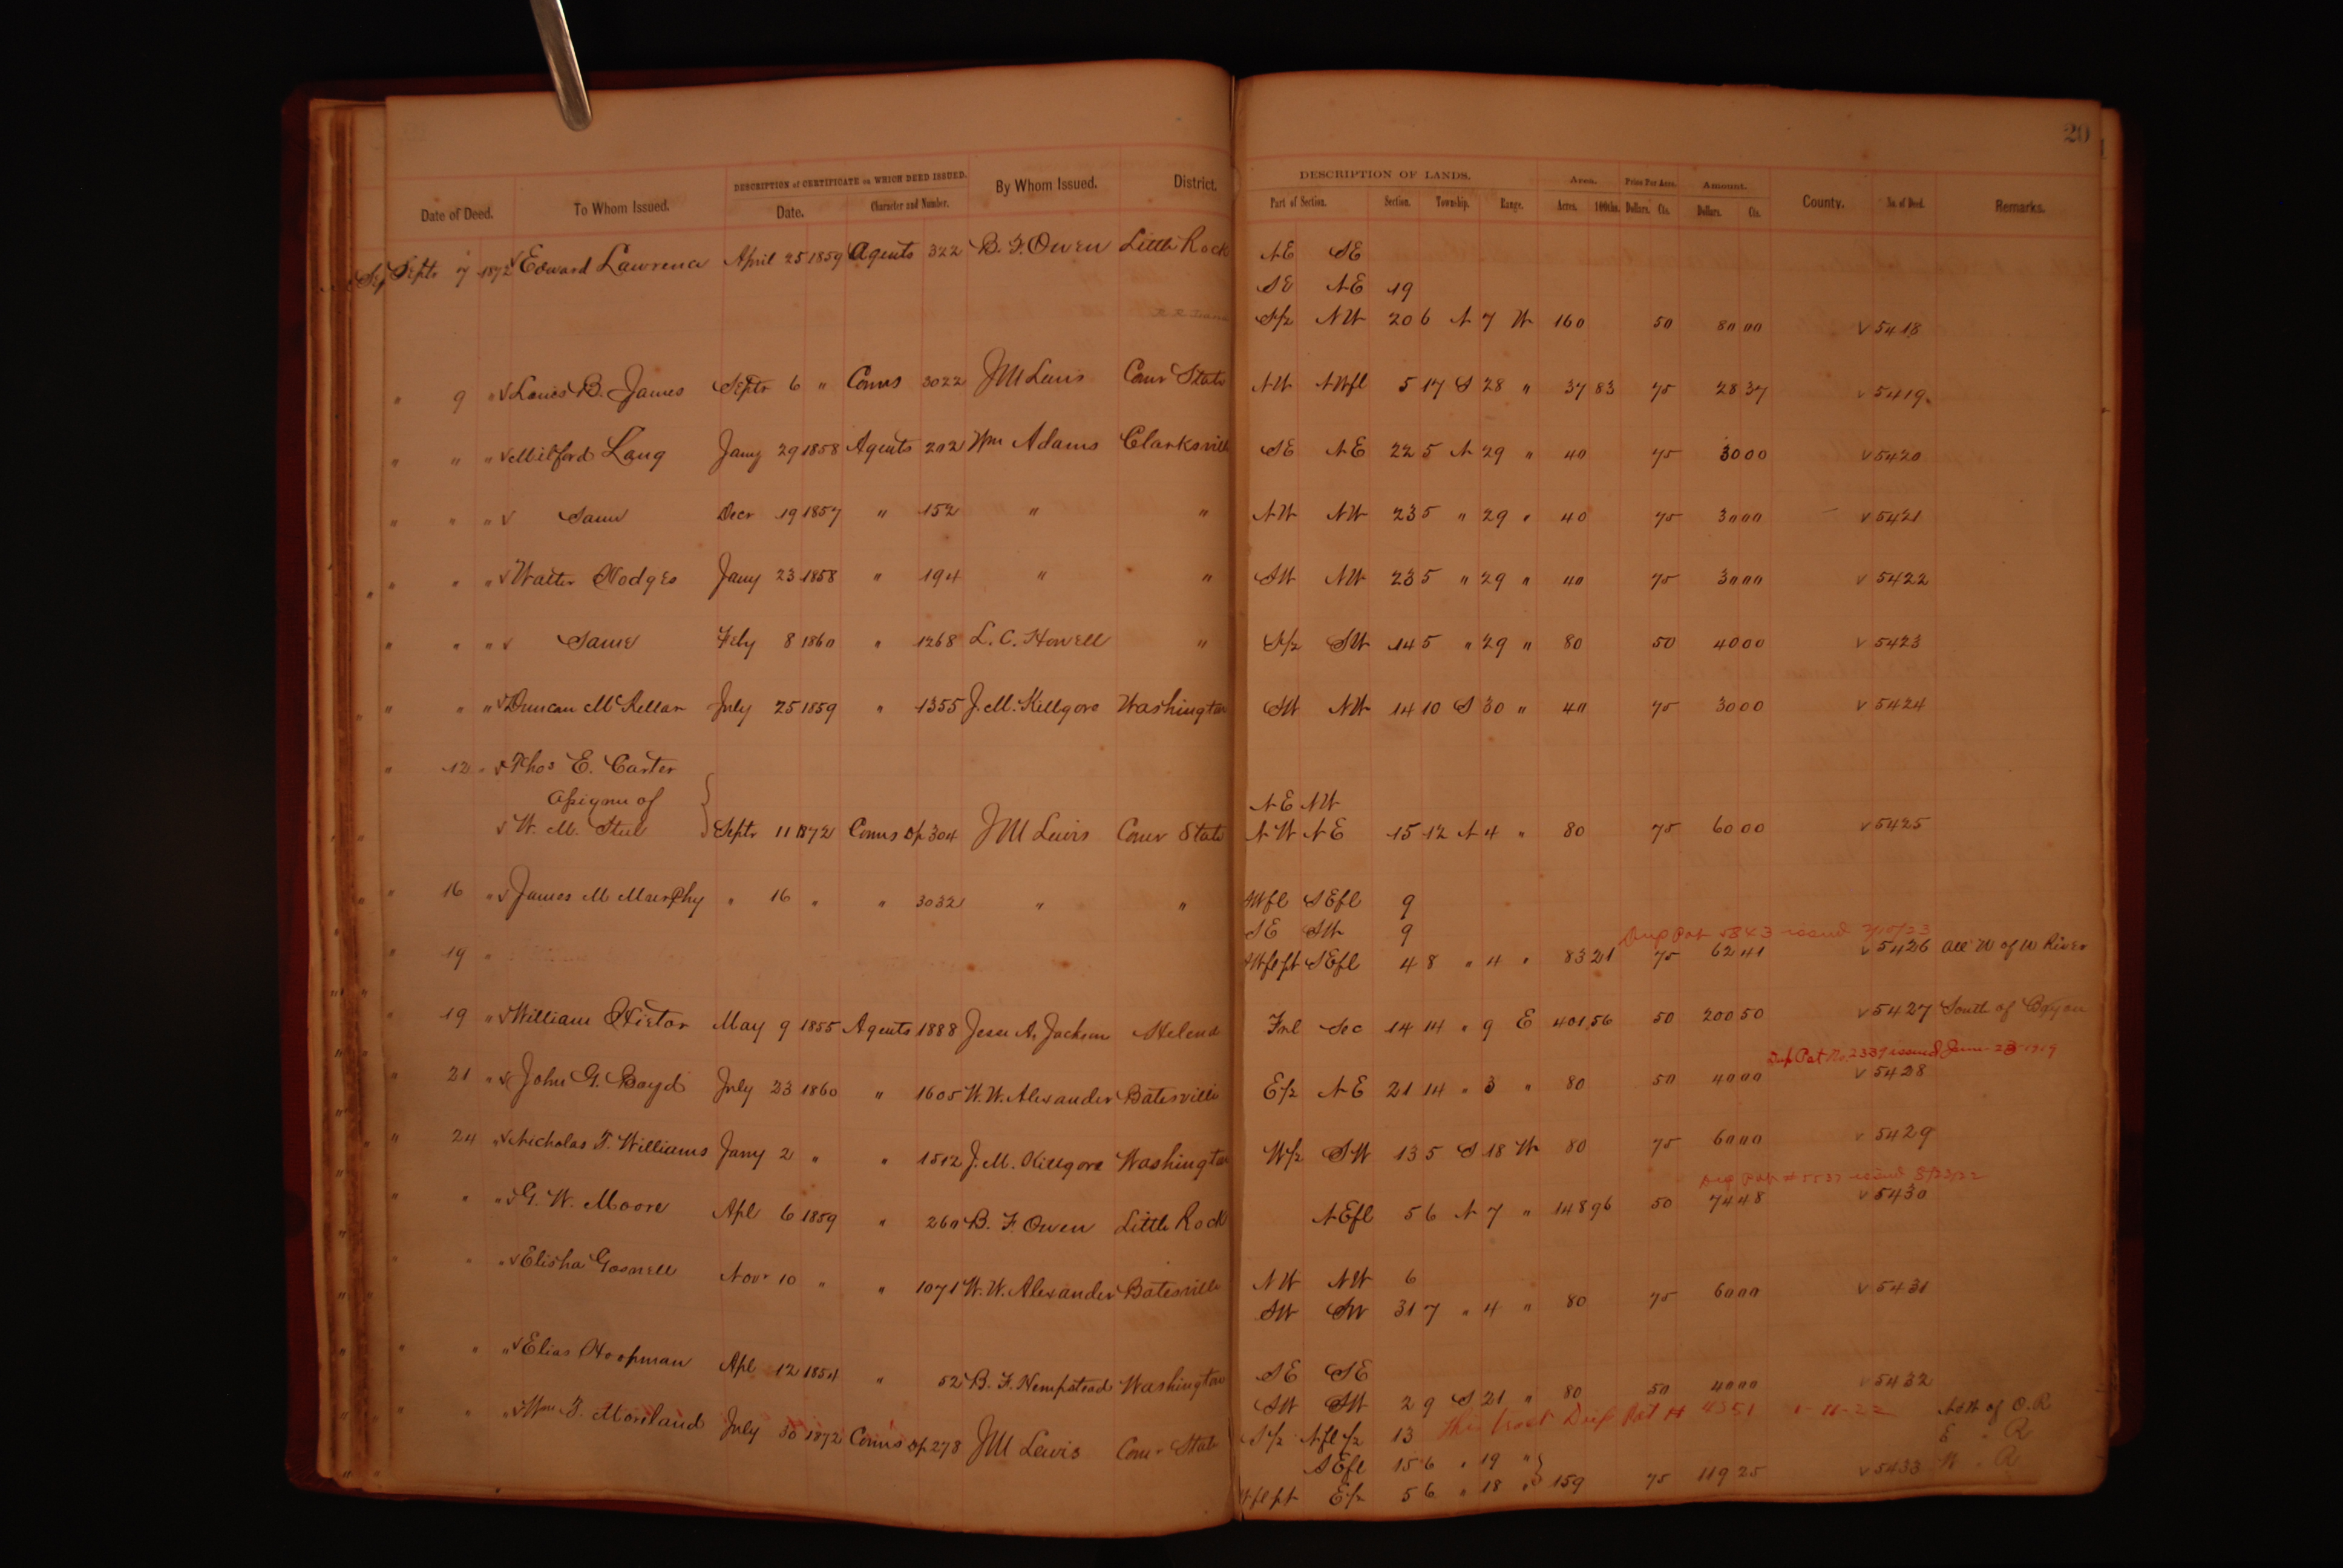 20
DESCRIPTION of CERTIFICATE on WHICH DEED ISSUED. DESCRIPTION OF LANDS. Area. Price Per Acre. Amount.
Date of Deed. To Whom Issued. Date. Character and Number. By Whom Issued. District. Part of Section. Section. Township. Range. Acres. 100ths. Dollars. Cts. Dollars. Cts. County. No. of Deed. Remarks.
Septr 7 1872 √ Edward Lawrence April 25 1859 Agents 322 B. F. Owen Little Rock NE SE
SE NE 19
S/2 NW 20 6 N 7 W 160 50 80 00 √ 5418
" 9 " √ Louis B. James Septr 6 " Coms 3022 JM Lewis Comr State NW NWfl 5 17 S 28 " 37 83 75 28 37 √ 5419
" " " √ Milford Lang Jany 29 1858 Agents 202 Wm Adams Clarksville SE NE 22 5 N 29 " 40 75 30 00 √ 5420
" " " √ Same Decr 19 1857 " 152 " " NW NW 23 5 " 29 " 40 75 30 00 √ 5421
" " " √ Walter Hodges Jany 23 1858 " 194 " " SW NW 23 5 " 29 " 40 75 30 00 √ 5422
" " " √ Same Feby 8 1860 " 1268 L. C. Howell " S/2 SW 14 5 " 29 " 80 50 40 00 √ 5423
" " " √ Duncan McKellar July 25 1859 " 1355 J. M. Killgore Washington SW NW 14 10 S 30 " 40 75 30 00 √ 5424
" 12 " √ Thos E. Carter
Assignee of NE NW
√ W. M. Steel Septr 11 1872 Coms Dp 304 JM Lewis Comr State NW NE 15 12 N 4 " 80 75 60 00 √ 5425
" 16 " √ James M Murphy " 16 " " 3032 " " SWfl SEfl 9
SE SW 9
Dup Pat 5843 issued
" 19 " SEfl 4 8 " 4 " 83 21 75 62 41 √ 5426 all W of W River
" 19 " √ William May 9 1855 Agents 1888 Jesse A. Jackson Helena Frl Sec 14 14 " 9 E 401 56 50 200 50 √ 5427 South of Bayou
Dup Pat No 2339 issued
" 21 " √ John G. Boyd July 23 1860 " 1605 W. W. Alexander Batesville E/2 NE 21 14 " 3 " 80 50 40 00 √ 5428
" 24 " √ Nicholas T. Williams Jany 2 " " 1512 J. M. Killgore Washington W/2 SW 13 5 S 18 W 80 75 60 00 √ 5429
Dup Pat # 5537 issued
" " " √ G. W. Moore Apl 6 1859 " 260 B. F. Owen Little Rock NEfl 5 6 N 7 " 148 96 50 74 48 √ 5430
" " " √ Elisha Gosnell Novr 10 " " 1071 W. W. Alexander Batesville NW NW 6
SW SW 31 7 " 4 " 80 75 60 00 √ 5431
" " " √ Elias Hoopman Apl 12 1854 " 52 B. F. Hempstead Washington SE SE
SW SW 2 9 S 21 " 80 50 40 00 √ 5432
This tract Dup Pat # 4351 1-11-22
" " " √ Wm F. Moreland July 30 1872 Coms Dp 278 JM Lewis Comr State S/2 Nfl/2 13 N&W of O. R
SEfl 15 6 " 19 " E " R
E/2 5 6 " 18 " 159 75 119 25 √ 5433 W " R